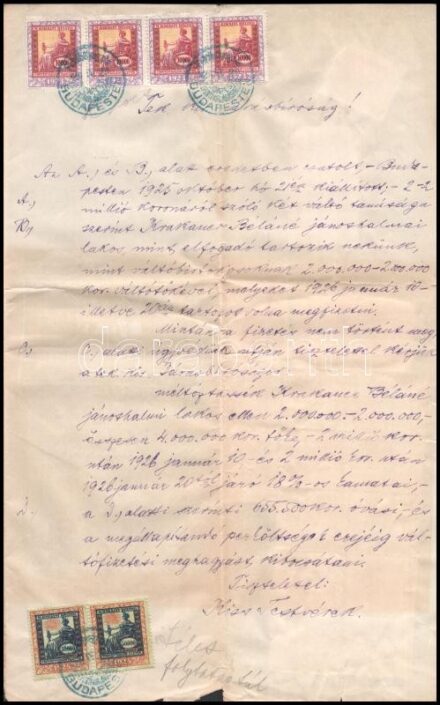 Tek.             bíróság!
Az A., és B., alatt eredetben csatolt, - Buda-
pesten 1925 október hó      kiállított, - 2-2
A.,
B.,
millió koronáról szóló két váltó tanúsága
szerint Krakauer Béláné jánoshalmai
lakos mint elfogadó tartozik nekünk,
mint váltóbirtokosoknak 2.000.000-2.000.000
kor. váltótőkével, melyeket 1926 január 10-
illetve 20áig tartozott volna megfizetni.
Minthogy a fizetés nem történt meg
C., alatt ügyvédünk útján tisztelettel kérjük
a tek. kir. Járásbíróságot
méltóztassék Krakauer Béláné
jánoshalmi lakos ellen 2.000.000.-2.000.000,-
összesen 4.000.000 kor. tőke, - 2 millió kor.
után 1926 január 10- és 2 millió kor. után
1926 január 20tól járó 18%-os kamatai, -
a D., alatti            kor. óvási, - és
a megállapítandó perköltségek erejéig vál-
tófizetési meghagyást kibocsátani.
Tisztelettel:
Kiss Testvérek.
BUDAPEST
BUDAPEST
BUDAPEST
darabanth